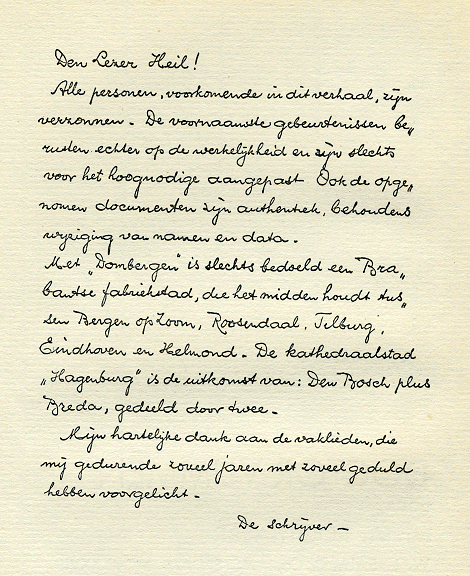 Den Lezer Heil!
Alle personen, voorkomende in dit verhaal, zijn
verzonnen. De voornaamste gebeurtenissen be„
rusten echter op de werkelijkheid en zijn slechts
voor het hoognodige aangepast. Ook de opge„
nomen documenten zijn authentiek, behoudens
wijziging van namen en data.
Met „Dombergen" is slechts bedoeld een Bra„
bantse fabriekstad, die het midden houdt tus„
sen Bergen op Zoom, Roosendaal, Tilburg,
Eindhoven en Helmond. De kathedraalstad
„Hagenburg" is de uitkomst van: Den Bosch plus
Breda, gedeeld door twee.
Mijn hartelijke dank aan de vaklieden, die
mij gedurende zoveel jaren met zoveel geduld
hebben voorgelicht.
De Schrijver —